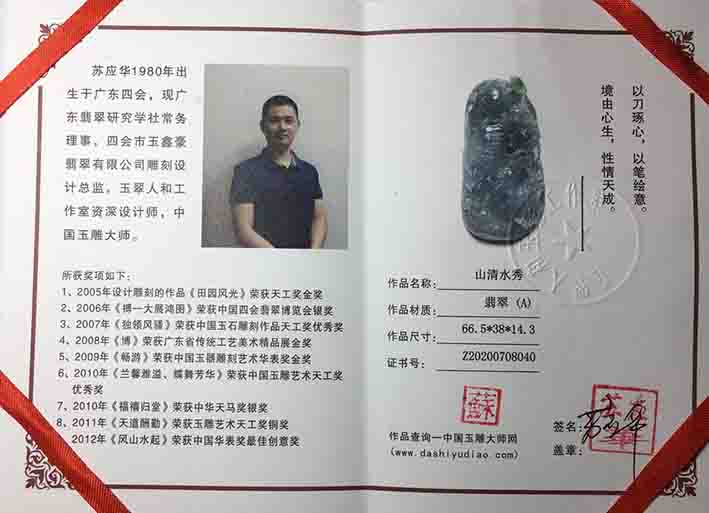 苏应华1980年出
生于广东四会，现广
东翡翠研究学社常务
理事、四会市玉鑫豪
翡翠有限公司雕刻设
计总监。玉翠人和工
作室资深设计师，中
国玉雕大师。
所获奖项如下：
1、2005年设计雕刻的作品《田园风光》荣获天工奖金奖
2、2006年《搏一大展鸿图》荣获中国四会翡翠博览会银奖
3、2007年《独领风骚》荣获中国玉石雕刻作品天工奖优秀奖
4、2008年《博》荣获广东省传统工艺美术精品展金奖
5、2009年《畅游》荣获中国玉器雕刻艺术华表奖金奖
6、2010年《兰馨雅溢、蝶舞芳华》荣获中国玉雕艺术天工奖
优秀奖
7、2010年《福禧归堂》荣获中华天马奖银奖
8、2011年《天道酬勤》荣获玉雕艺术天工奖铜奖
2012年《风山水起》荣获中国华表奖最佳创意奖
以刀琢心，以笔绘意。
境由心生，性情天成。
作品名称： 山清水秀
作品材质： 翡翠 (A)
作品尺寸： 66.5*38*14.3
证书号： Z20200708040
蘇
作品查询—中国玉雕大师网
(www.dashiyudiao.com)
签名：
盖章：